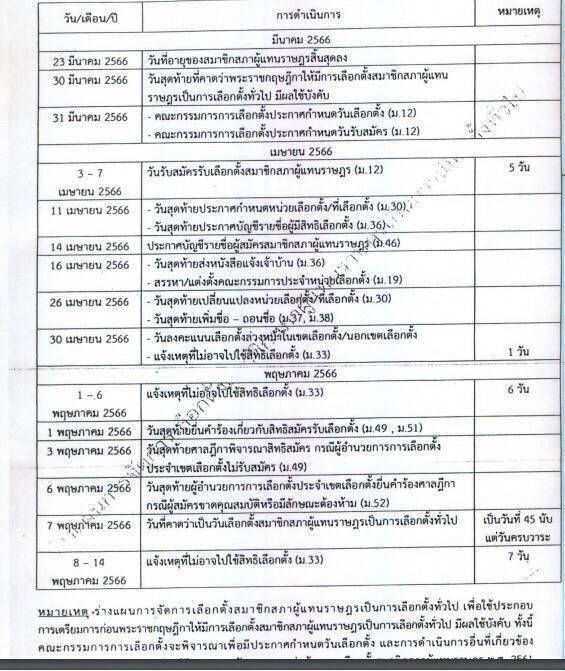 วัน/เดือน/ปี การดำเนินการ หมายเหตุ
มีนาคม 2566
23 มีนาคม 2566 วันที่อายุของสมาชิกสภาผู้แทนราษฎรสิ้นสุดลง
30 มีนาคม 2566 วันสุดท้ายที่คาดว่าพระราชกฤษฎีกาให้มีการเลือกตั้งสมาชิกสภาผู้แทน
ราษฎรเป็นการเลือกตั้งทั่วไป มีผลใช้บังคับ
31 มีนาคม 2566 - คณะกรรมการการเลือกตั้งประกาศกำหนดวันเลือกตั้ง (ม.12)
- คณะกรรมการการเลือกตั้งประกาศกำหนดวันรับสมัคร (ม.12)
เมษายน 2566
3 – 7 วันรับสมัครรับเลือกตั้งสมาชิกสภาผู้แทนราษฎร (ม.12) 5 วัน
เมษายน 2566
11 เมษายน 2566 - วันสุดท้ายประกาศกำหนดหน่วยเลือกตั้ง/ที่เลือกตั้ง (ม.30)
- วันสุดท้ายประกาศบัญชีรายชื่อผู้มีสิทธิเลือกตั้ง (ม.36)
14 เมษายน 2566 ประกาศบัญชีรายชื่อผู้สมัครสมาชิกสภาผู้แทนราษฎร (ม.46)
16 เมษายน 2566 - วันสุดท้ายส่งหนังสือแจ้งเจ้าบ้าน (ม.36)
- สรรหา/แต่งตั้งคณะกรรมการประจำหน่วยเลือกตั้ง (ม.19)
26 เมษายน 2566 - วันสุดท้ายเปลี่ยนแปลงหน่วยเลือกตั้ง/ที่เลือกตั้ง (ม.30)
- วันสุดท้ายเพิ่มชื่อ – ถอนชื่อ (ม.37, ม.38)
30 เมษายน 2566 - วันลงคะแนนเลือกตั้งล่วงหน้าในเขตเลือกตั้ง/นอกเขตเลือกตั้ง
- แจ้งเหตุที่ไม่อาจไปใช้สิทธิเลือกตั้ง (ม.33) 1 วัน
พฤษภาคม 2566
1 – 6 แจ้งเหตุที่ไม่อาจไปใช้สิทธิเลือกตั้ง (ม.33) 6 วัน
พฤษภาคม 2566
1 พฤษภาคม 2566 วันสุดท้ายยื่นคำร้องเกี่ยวกับสิทธิสมัครรับเลือกตั้ง (ม.49 , ม.51)
3 พฤษภาคม 2566 วันสุดท้ายศาลฎีกาพิจารณาสิทธิสมัคร กรณีผู้อำนวยการการเลือกตั้ง
ประจำเขตเลือกตั้งไม่รับสมัคร (ม.49)
6 พฤษภาคม 2566 วันสุดท้ายผู้อำนวยการการเลือกตั้งประจำเขตเลือกตั้งยื่นคำร้องศาลฎีกา
กรณีผู้สมัครขาดคุณสมบัติหรือมีลักษณะต้องห้าม (ม.52)
7 พฤษภาคม 2566 วันที่คาดว่าเป็นวันเลือกตั้งสมาชิกสภาผู้แทนราษฎรเป็นการเลือกตั้งทั่วไป เป็นวันที่ 45 นับ
แต่วันครบวาระ
8 – 14 แจ้งเหตุที่ไม่อาจไปใช้สิทธิเลือกตั้ง (ม.33) 7 วัน
พฤษภาคม 2566
หมายเหตุ ร่างแผนการจัดการเลือกตั้งสมาชิกสภาผู้แทนราษฎรเป็นการเลือกตั้งทั่วไป เพื่อใช้ประกอบ
การเตรียมการก่อนพระราชกฤษฎีกาให้มีการเลือกตั้งสมาชิกสภาผู้แทนราษฎรเป็นการเลือกตั้งทั่วไป มีผลใช้บังคับ ทั้งนี้
คณะกรรมการการเลือกตั้งจะพิจารณาเพื่อมีประกาศกำหนดวันเลือกตั้ง และการดำเนินการอื่นที่เกี่ยวข้อง